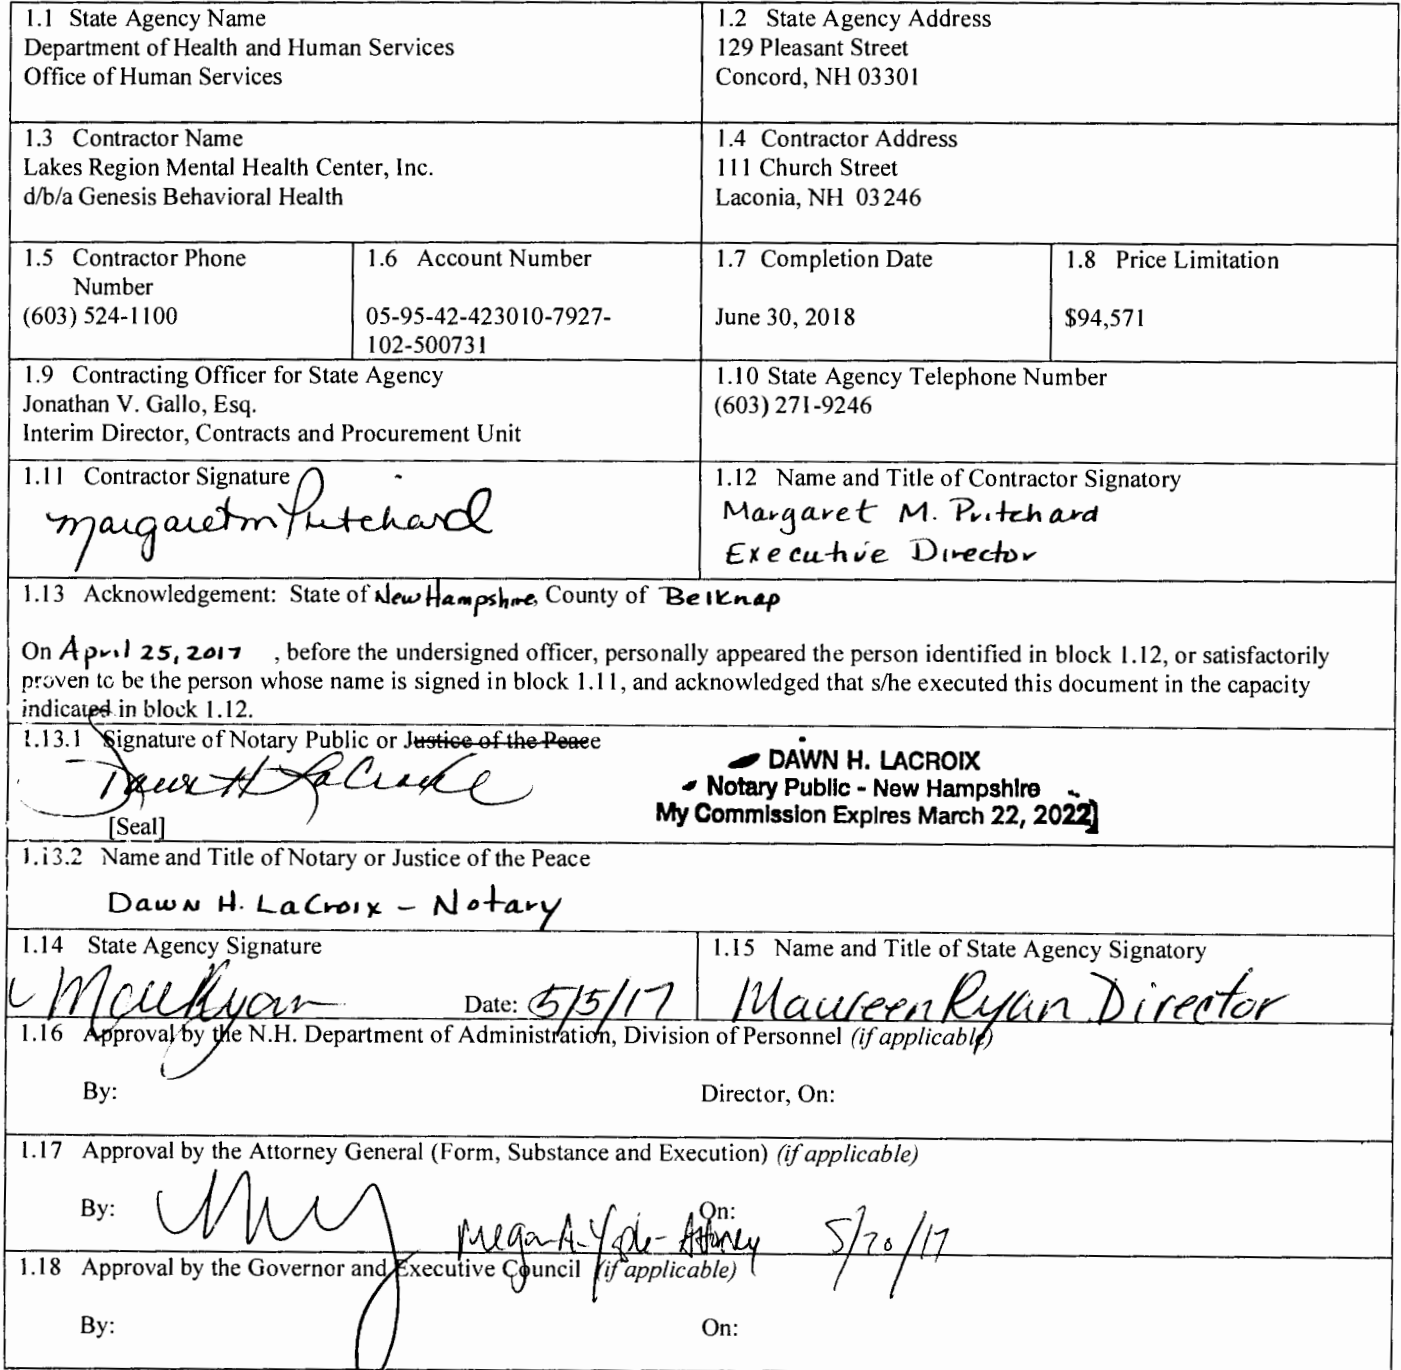 1.1 State Agency Name
Department of Health and Human Services
Office of Human Services
1.2 State Agency Address
129 Pleasant Street
Concord, NH 03301
1.3 Contractor Name
Lakes Region Mental Health Center, Inc.
d/b/a Genesis Behavioral Health
1.4 Contractor Address
111 Church Street
Laconia, NH 03246
1.5 Contractor Phone
Number
(603) 524-1100
1.6 Account Number
05-95-42-423010-7927-
102-500731
1.7 Completion Date
June 30, 2018
1.8 Price Limitation
$94,571
1.9 Contracting Officer for State Agency
Jonathan V. Gallo, Esq.
Interim Director, Contracts and Procurement Unit
1.10 State Agency Telephone Number
(603) 271-9246
1.11 Contractor Signature
Margaret M Pritchard
1.12 Name and Title of Contractor Signatory
Margaret M. Pritchard
Executive Director
1.13 Acknowledgement: State of New Hampshire, County of Belknap
On April 25, 2017 , before the undersigned officer, personally appeared the person identified in block 1.12, or satisfactorily
proven to be the person whose name is signed in block 1.11, and acknowledged that s/he executed this document in the capacity
indicated in block 1.12.
1.13.1 Signature of Notary Public or Justice of the Peace
Dawn H LaCroix
[Seal]
DAWN H. LACROIX
Notary Public - New Hampshire
My Commission Expires March 22, 2022
1.13.2 Name and Title of Notary or Justice of the Peace
Dawn H. LaCroix - Notary
1.14 State Agency Signature
Date: 5/5/17
1.15 Name and Title of State Agency Signatory
Maureen Ryan Director
1.16 Approval by the N.H. Department of Administration, Division of Personnel (if applicable)
By:
Director, On:
1.17 Approval by the Attorney General (Form, Substance and Execution) (if applicable)
By:
On:
Megan A. Yople - Attorney 5/20/17
1.18 Approval by the Governor and Executive Council (if applicable)
By:
On: